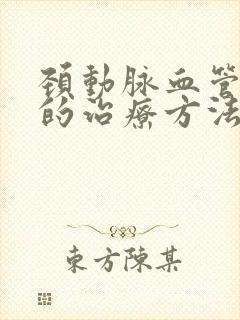 頚動脉血管
的治療方法
東方陳某